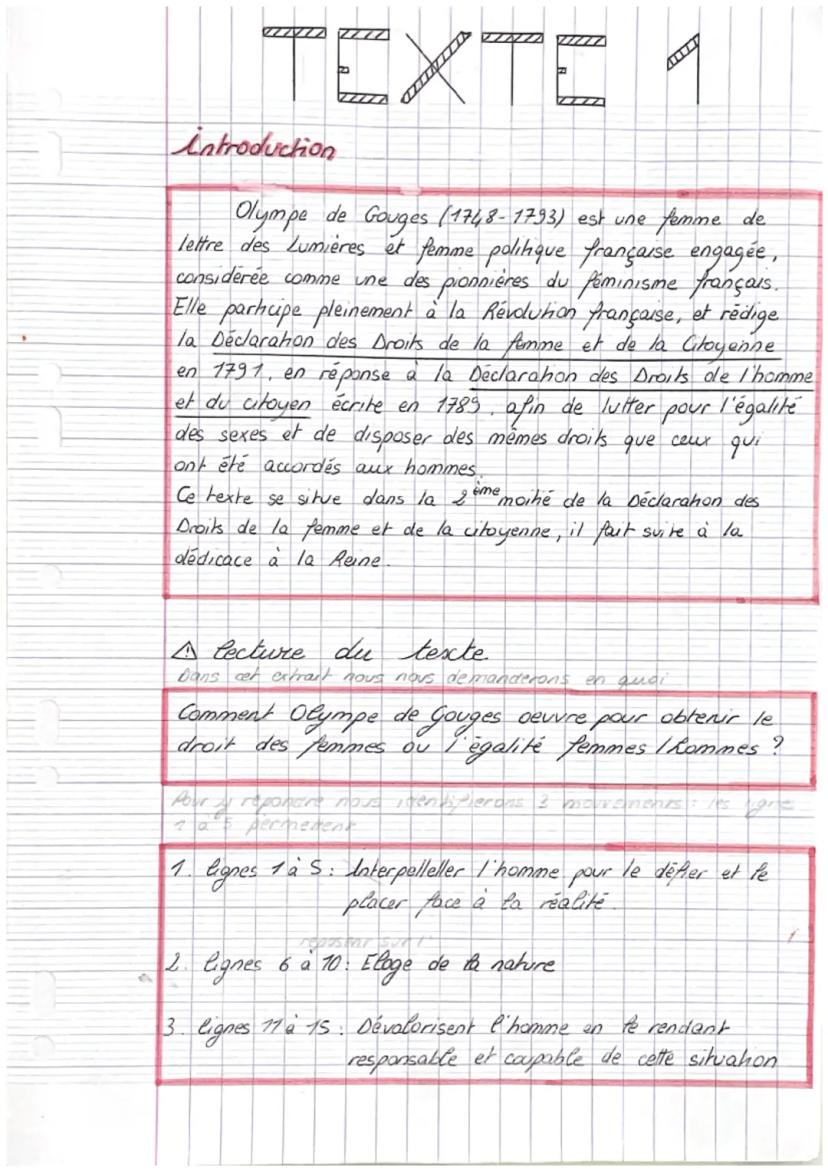 TEXTE 1
introduction
Olympe de Gouges (1748-1793) est une femme de
lettre des Lumières et femme politique française engagée,
considérée comme une des pionnières du féminisme français.
Elle participe pleinement à la Révolution française, et rédige
la Déclaration des Droits de la femme et de la Citoyenne
en 1791, en réponse à la Déclaration des Droits de l'homme
et du citoyen écrite en 1789, afin de lutter pour l'égalité
des sexes et de disposer des mêmes droits que ceux qui
ont été accordés aux hommes.
Ce texte se situe dans la 2ème moitié de la Déclaration des
Droits de la femme et de la citoyenne, il fait suite à la
dédicace à la Reine.
⚠ lecture du texte
Dans cet extrait nous nous demanderons en quoi
Comment Olympe de Gouges oeuvre pour obtenir le
droit des femmes ou l'égalité femmes / hommes ?
Pour y répondre nous identifierons 3 mouvements : les lignes
1 à 5 permettent
1. lignes 1 à 5 : Interpelleller l'homme pour le défier et le
placer face à la réalité.
reposent sur l'
2. lignes 6 à 10 : Eloge de la nature
3. lignes 11 à 15 : Dévalorisent l'homme en le rendant
responsable et coupable de cette situation